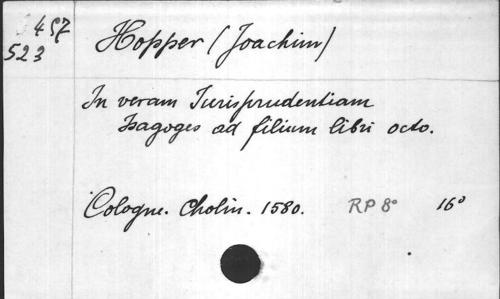 457
523
Hopper (Joachim)
In veram Jurisprudentiam
Isagoges ad filium libri octo.
Cologne. Cholin. 1580. RP 8° 16°